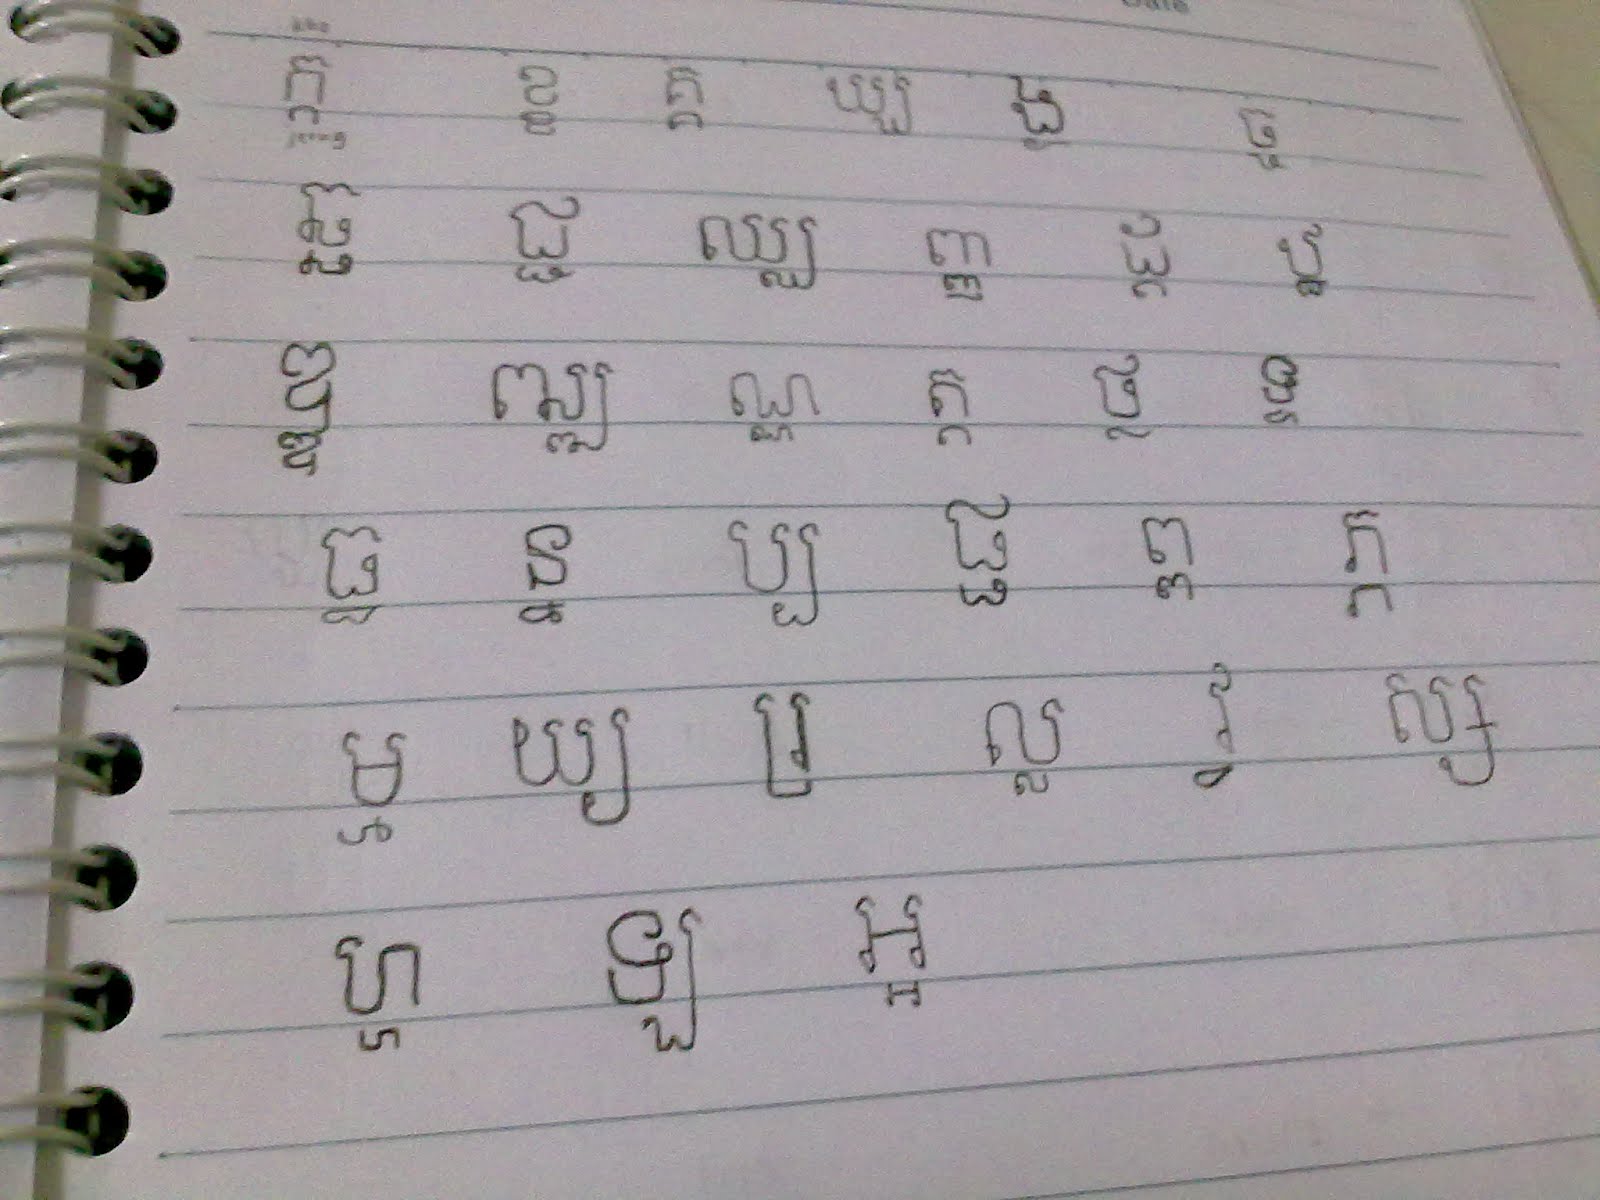 Date
ក្ក ខ្ខ គ្គ ឃ្ឃ ង្ង ច្ច
ឆ្ឆ ជ្ជ ឈ្ឈ ញ្ញ ដ្ដ ឋ្ឋ
ឌ្ឌ ឍ្ឍ ណ្ណ ត្ត ថ្ថ ទ្ទ
ធ្ធ ន្ន ប្ប ផ្ផ ព្ព ភ្ភ
ម្ម យ្យ រ្រ ល្ល វ្វ ស្ស
ហ្ហ ឡ្ឡ អ្អ